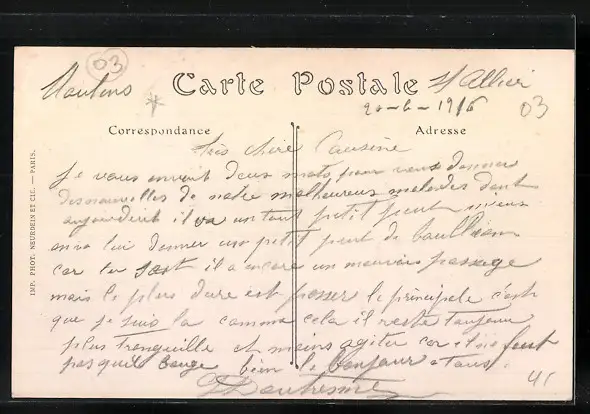 03
Moulins Carte Postale s/ Allier
20-6-1916 03
Correspondance Adresse
très chère Cousine
je vous envoit deux mots pour vous donner
des nouvelles de notre malheureux malades dont
aujourderit il va un tout petit peut mieux
on va lui donner un petit peut de boullion
car ce soit il a encore un mauvais passage
mais le plus dure est passer le principale c'est
que je suis la comme cela il reste toujour
plus tranquille et moins agiter car il ne faut
pas quil bouge bien le bonjour a tous
45
IMP. PHOT. NEURDEIN ET CIE. — PARIS.